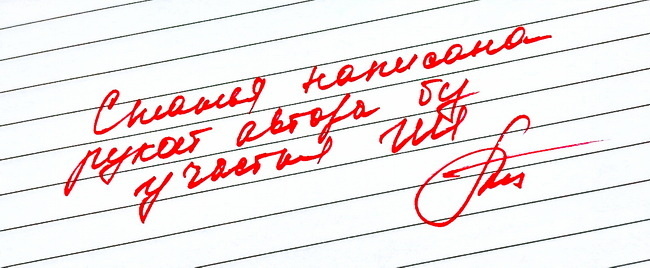 Статья написана
рукой автора без
участия ИИ